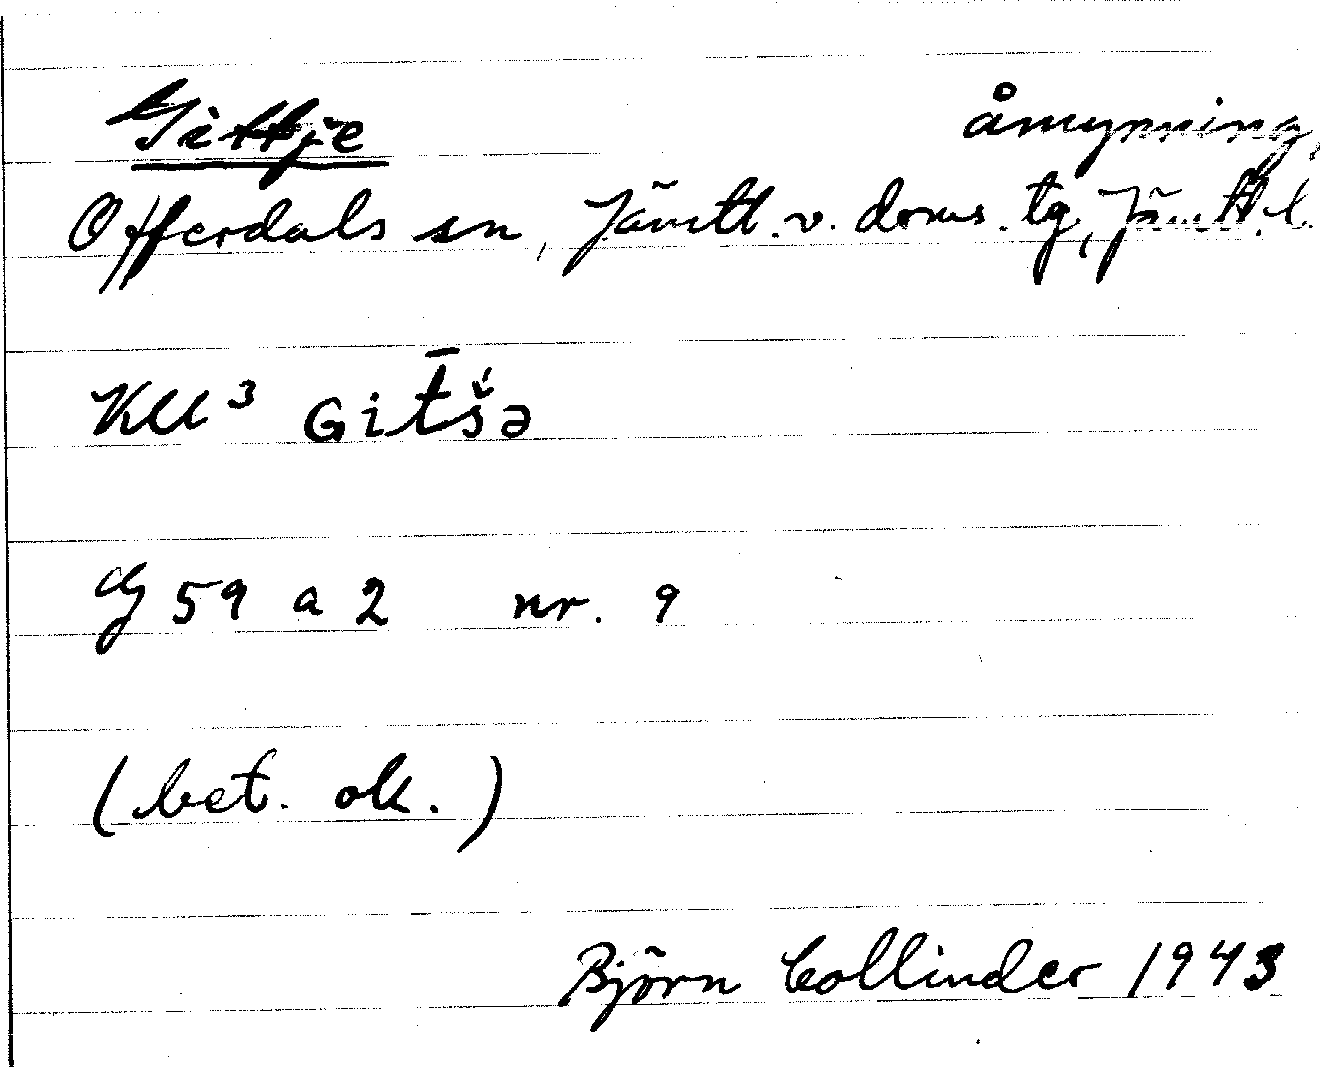 Gittje åmynning,
Offerdals sn, Jämtl. v. doms. tg, Jämtl. l.
KU³ Git̄šə
G 59 a 2 nr. 9
(bet. ok.)
Björn Collinder 1943